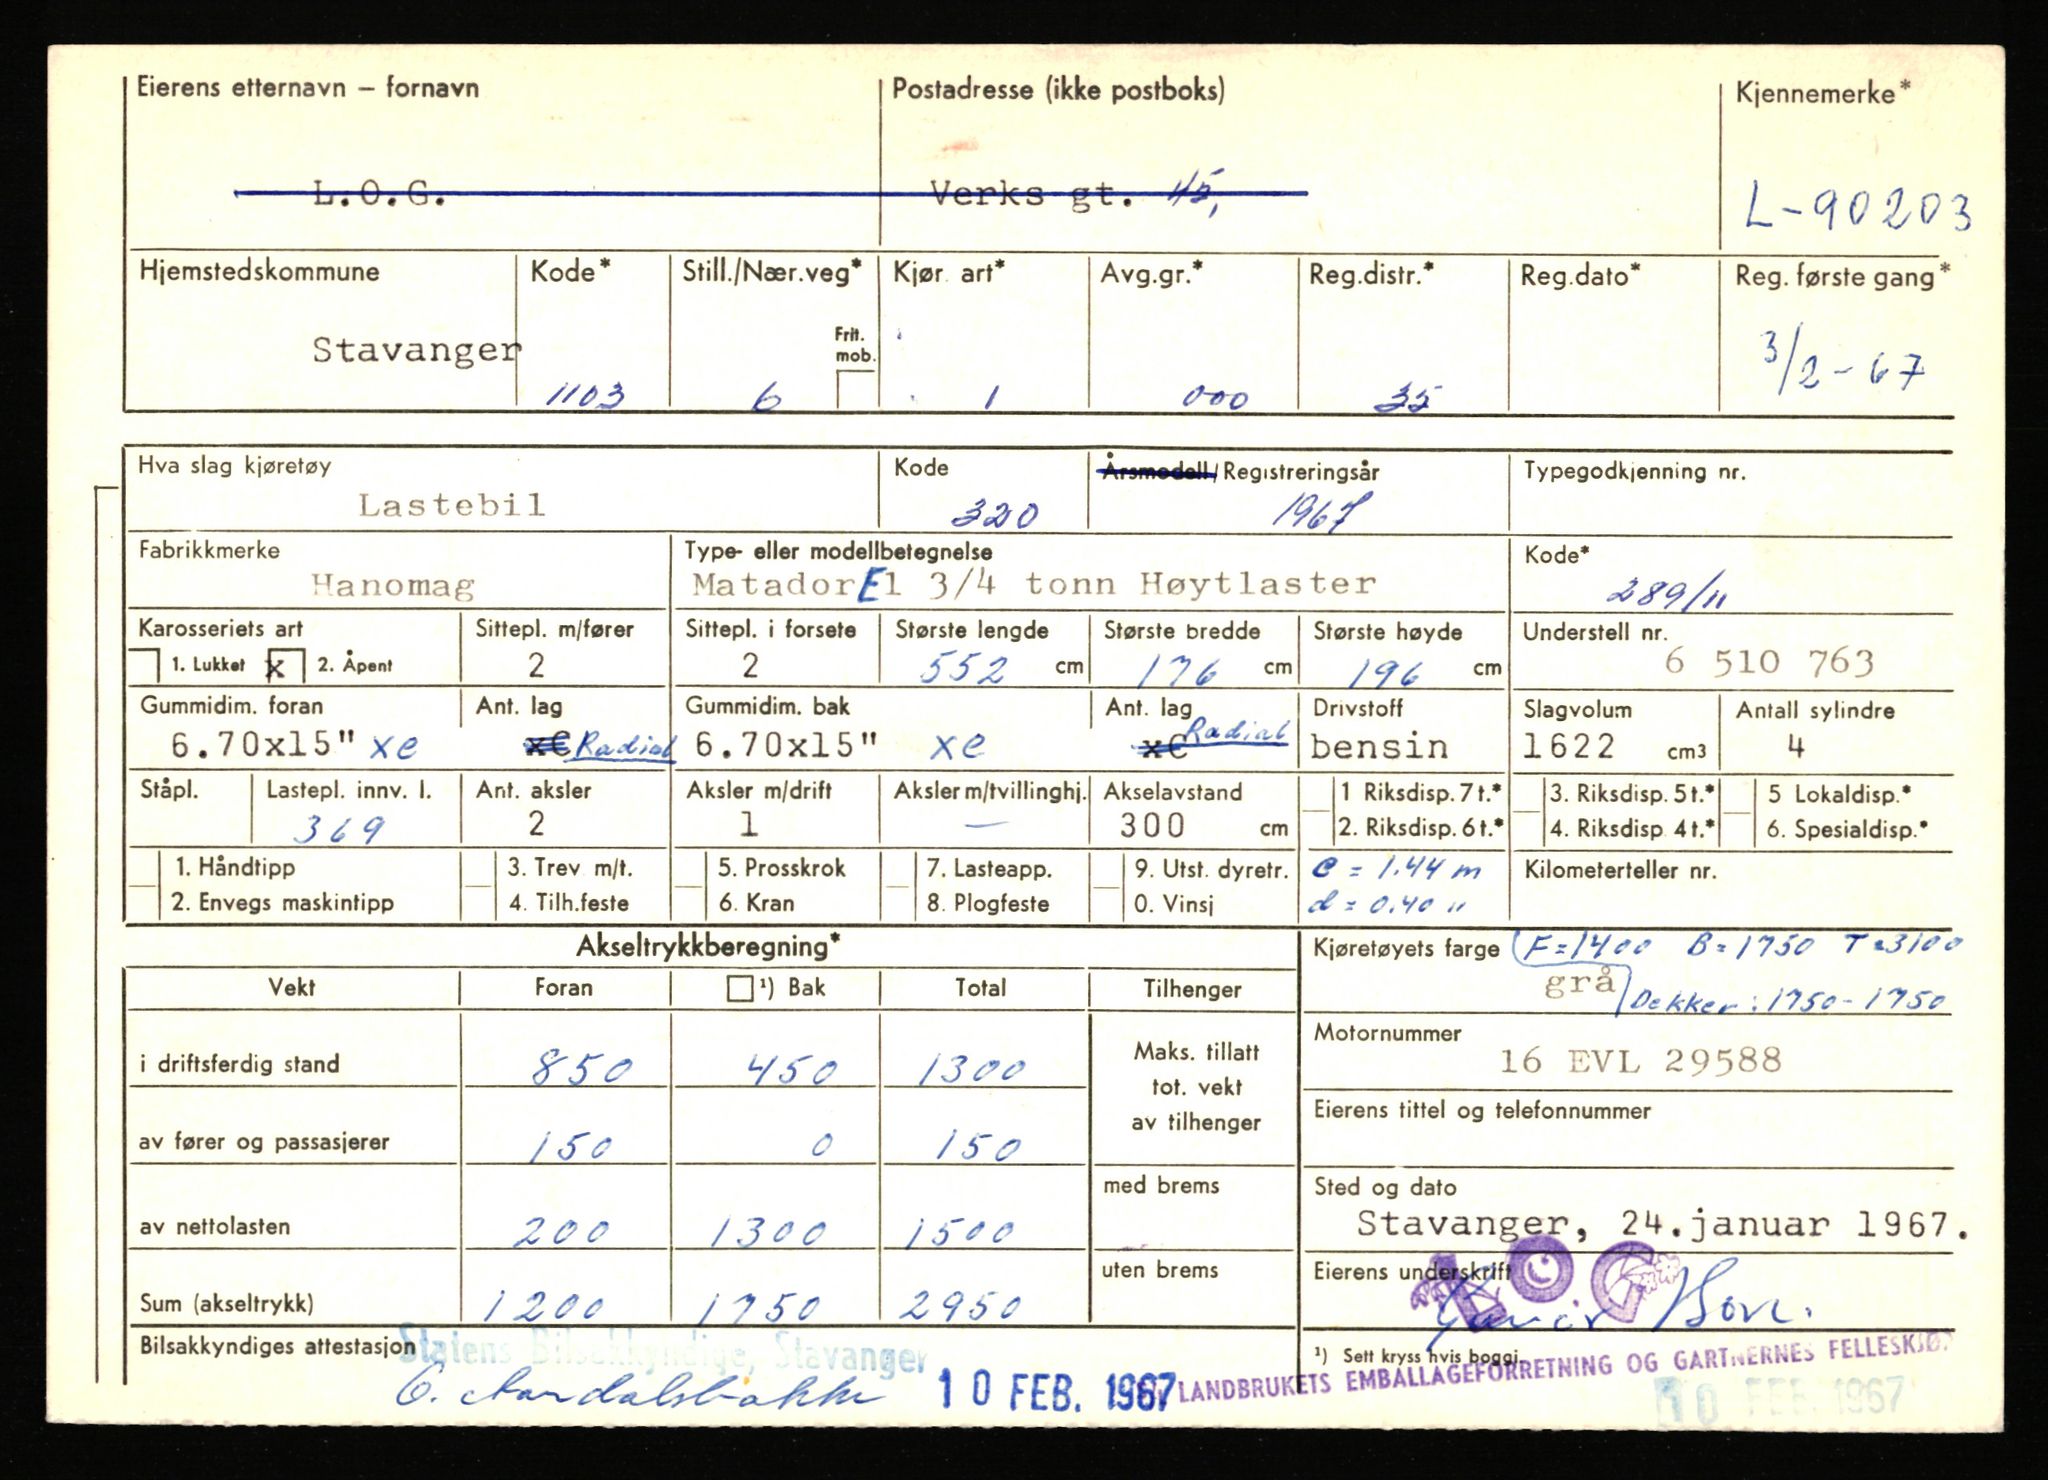 Eierens etternavn – fornavn Postadresse (ikke postboks) Kjennemerke*
L.O.G. Verks gt. 45, L-90203
Hjemstedskommune Kode* Still./Nær.veg* Kjør. art* Avg.gr.* Reg.distr.* Reg.dato* Reg. første gang*
Frit.
mob.
Stavanger 3/2-67
1103 6 1 000 35
Hva slag kjøretøy Kode Årsmodell/Registreringsår Typegodkjenning nr.
Lastebil 320 1967
Fabrikkmerke Type- eller modellbetegnelse Kode*
Hanomag Matador E1 3/4 tonn Høytlaster 289/11
Karosseriets art Sittepl. m/fører Sittepl. i forsete Største lengde Største bredde Største høyde Understell nr.
1. Lukket x 2. Åpent 2 2 552 cm 176 cm 196 cm 6 510 763
Gummidim. foran Ant. lag Gummidim. bak Ant. lag Drivstoff Slagvolum Antall sylindre
6.70x15" xe Radial 6.70x15" xe Radial bensin 1622 cm3 4
Ståpl. Lastepl. innv. l. Ant. aksler Aksler m/drift Aksler m/tvillinghj. Akselavstand 1 Riksdisp. 7 t.* 3. Riksdisp. 5 t.* 5 Lokaldisp.*
369 2 1 — 300 cm 2. Riksdisp. 6 t.* 4. Riksdisp. 4 t.* 6. Spesialdisp.*
1. Håndtipp 3. Trev m/t. 5. Prosskrok 7. Lasteapp. 9. Utst. dyretr. e = 1.44 m Kilometerteller nr.
2. Envegs maskintipp 4. Tilh.feste 6. Kran 8. Plogfeste 0. Vinsj d = 0.40 "
Akseltrykkberegning* Kjøretøyets farge F=1400 B=1750 T=3100
grå Dekker: 1750-1750
Vekt Foran ¹) Bak Total Tilhenger
Motornummer
i driftsferdig stand 850 450 1300 Maks. tillatt 16 EVL 29588
tot. vekt
av tilhenger
Eierens tittel og telefonnummer
av fører og passasjerer 150 0 150
med brems Sted og dato
av nettolasten 200 1300 1500 Stavanger, 24.januar 1967.
uten brems Eierens underskrift
L.O.G.
Sum (akseltrykk) 1200 1750 2950
Bilsakkyndiges attestasjon Statens Bilsakkyndige, Stavanger ¹) Sett kryss hvis boggi.
LANDBRUKETS EMBALLAGEFORRETNING OG GARTNERNES FELLESKJØP
10 FEB. 1967 10 FEB. 1967